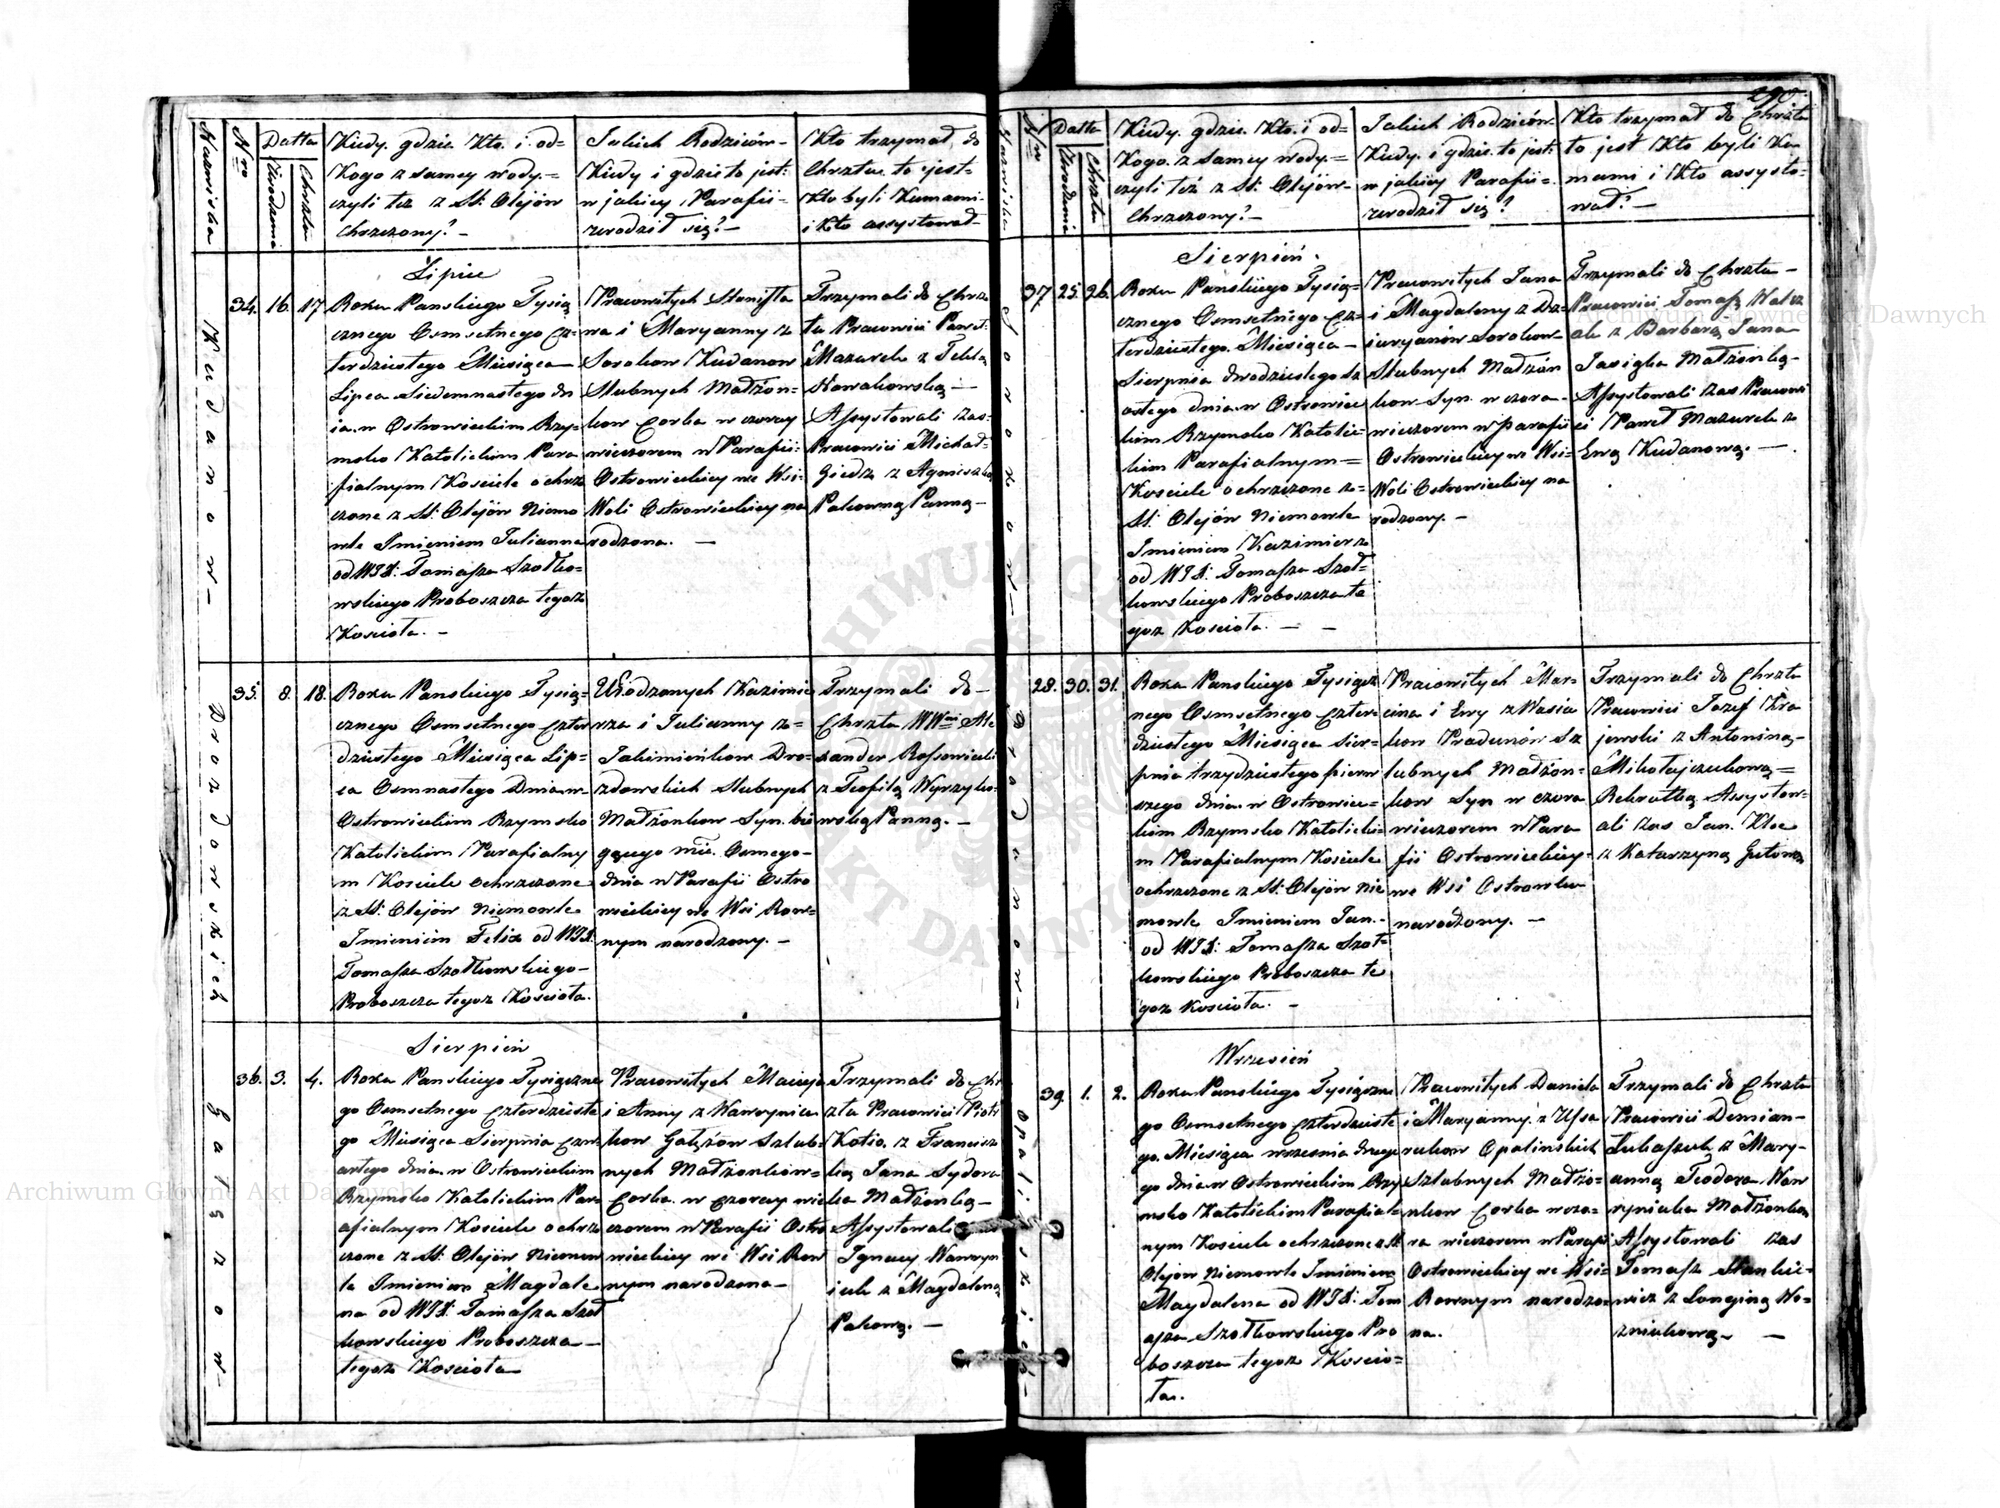 290
Nazwiska
Nro
Datta
Urodzenia
Chrztu
Kiedy. gdzie. Kto. i od=
Kogo z samey wody.=
czyli też z SS: Olejów
Chrzczony? –
Jakich Rodziców–
Kiedy i gdzie to jest:
w jakiey Parafii=
urodził się? –
Kto trzymał do
Chrztu. to jest–
Kto byli Kumami–
i Kto assystował–
Lipiec
Kudanow–
34.
16.
17
Roku Panskiego Tysią
cznego Osmsetnego Cz=
terdziestego Miesiąca
Lipca Siedemnastego dn
ia. w Ostrowieckim Rzy=
msko Katolickim Para
fialnym Kosciele ochrz
czone z SS: Olejów Niemo
wle Imieniem Julianna
od WJX: Tomasza Szołko=
wskiego Proboszcza tegoż
Kosciola. –
Pracowitych Stanisła
wa i Maryanny z
Sorokow Kudanow
Slubnych Małżon=
kow Corka w czoray
wieczorem w Parafii:
Ostrowieckiey we Wsi
Woli Ostrowieckiey na
rodzona. –
Trzymali do Chrz
tu Pracowici Paweł:
Mazurek z Teklą
Nowakowską –
Assystowali zas=
Pracowici Michał=
Giedz z Agnieszką
Pakowną Panną –
Drozdowskich
35.
8.
18.
Roku Panskiego Tysią=
cznego Osmsetnego Czter
dziestego Miesiąca Lip=
ca Osmnastego Dnia. w
Ostrowieckim Rzymsko
Katolickim Parafialny
m Kosciele ochrzczone
z SS: Olejów Niemowle
Imieniem Felix od WJX:
Tomasza Szołkowskiego–
Proboszcza tegoz Kosciola.
Urodzonych Kazimie
rza i Julianny z=
Jakimińkow Dro=
zdowskich Slubnych
Małżonkow Syn. bie
gącego mie. Osmego–
dnia w Parafii Ostro
wieckiey we Wsi Row=
nym narodzony. –
Trzymali do–
Chrztu WWni Ale
xander Rossowiecki
z Teofilą Wyrzyko=
wską Panną. –
Sierpień
Gałęzow–
36.
3.
4.
Roku Panskiego Tysiączne
go Osmsetnego Czterdzieste
go Miesiąca Sierpnia czw
artego dnia. w Ostrowieckim
Rzymsko Katolickim Par
afialnym Kosciele ochrz
czone z SS: Olejów Niemow
le Imieniem Magdale
na od WJX: Tomasza Szoł
kowskiego Proboszcza –
tegoz Kosciola
Pracowitych Macieja
i Anny z Wawrynia
kow Gałęzów Szlub=
nych Małzonków=
Corka. w czoray wie
czorem w Parafii Ostro
wieckiey we Wsi Row
nym narodzona –
Trzymali do Chr
ztu Pracowici Piotr
Kotio. z Francisz
ką Jana Sydora
ka Małżonką –
Assystowali
Ignacy Wawryn
iuk z Magdaleną
Pakową. –
Nazwiska
Nro
Datta
Urodzenia
Chrztu
Kiedy. gdzie. Kto. i od=
Kogo. z samey wody.=
czyli też z SS: Olejów–
Chrzczony? –
Jakich Rodziców
Kiedy. i gdzie. to jest:
w jakiey Parafii=
urodził się?
Kto trzymał do Chrztu
to jest Kto byli Ku
mami i Kto assysto=
wał? –
Sierpień.
Soroków–
37
25.
26.
Roku Panskiego Tysią=
cznego Osmsetnego Cz=
terdziestego. Miesiąca –
Sierpnia dwudziestego sz
ostego dnia. w Ostrowiec
kim Rzymsko Katolic=
kim Parafialnym=
Kosciele ochrzczone z=
SS: Olejów Niemowle
Imieniem Kazimierz
od WJX: Tomasza Szoł=
kowskiego Proboszcza te
goz Kosciola. – –
Pracowitych Jana
i Magdaleny z Dz=
iuryanów Sorokow–
Slubnych Małżon
kow Syn. w czora–
wieczorem w parafii
Ostrowieckiey we Wsi=
Woli Ostrowieckiey na
rodzony. –
Trzymali do Chrztu –
Pracowici Tomasz Walcz
ak z Barbarą Jana
Jasigka Małżonką–
Assystowali zas Pracowi
ci Paweł Mazurek z
Ewą Kudanową. –
28.
30.
31.
Roku Panskiego Tysiącz
nego Osmsetnego Czter=
dziestego Miesiąca Sier=
pnia trzydziestego pierw
szego dnia. w Ostrowiec=
kim Rzymsko Katolicki=
m Parafialnym Kosciele
ochrzczone z SS: Olejów Nie
mowle Imieniem Jan.–
od WJX: Tomasza Szoł=
kowskiego Proboszcza te
goz Kosciola. –
Pracowitych Mar=
cina i Ewy z Wasia
kow Pradunów Sz
lubnych Małżon=
kow Syn w czora
wieczorem w Para
fii Ostrowieckiey=
we Wsi Ostrowku
narodzony. –
Trzymali do Chrztu
Pracowici Jozef Kra
jewski z Antoniną–
Mikołajczukową=
Rekrutką Assystow=
ali zas Jan. Kloc
z Katarzyną Gutową
Wrzesień
Opalinskich–
39
1.
2.
Roku Panskiego Tysiączne
go Osmsetnego Czterdzieste
go. Miesiąca wrzesnia drugie
go dnia w Ostrowieckim Rzy
msko Katolickim Parafial=
nym Kosciele ochrzczone z SS
Olejów Niemowle Imieniem
Magdalena od WJX: Tom
asza Szołkowskiego Pro
boszcza tegoz Koscio=
ła.
Pracowitych Daniela
i Maryanny z Ussa
rukow Opalinskich
Szlubnych Małżo=
nkow Corka wczo=
ra wieczorem w Parafi
Ostrowieckiey we Wsi=
Rownym narodzo=
na.
Trzymali do Chrztu
Pracowici Demian–
Lukaszuk z Mary–
anną Teodora. Waw
ryniuka Małzonką
Assystowali zas
Tomasz Stankie=
wicz z Longiną Wo=
zniukową– –
Archiwum Główne Akt Dawnych
Archiwum Główne Akt Dawnych